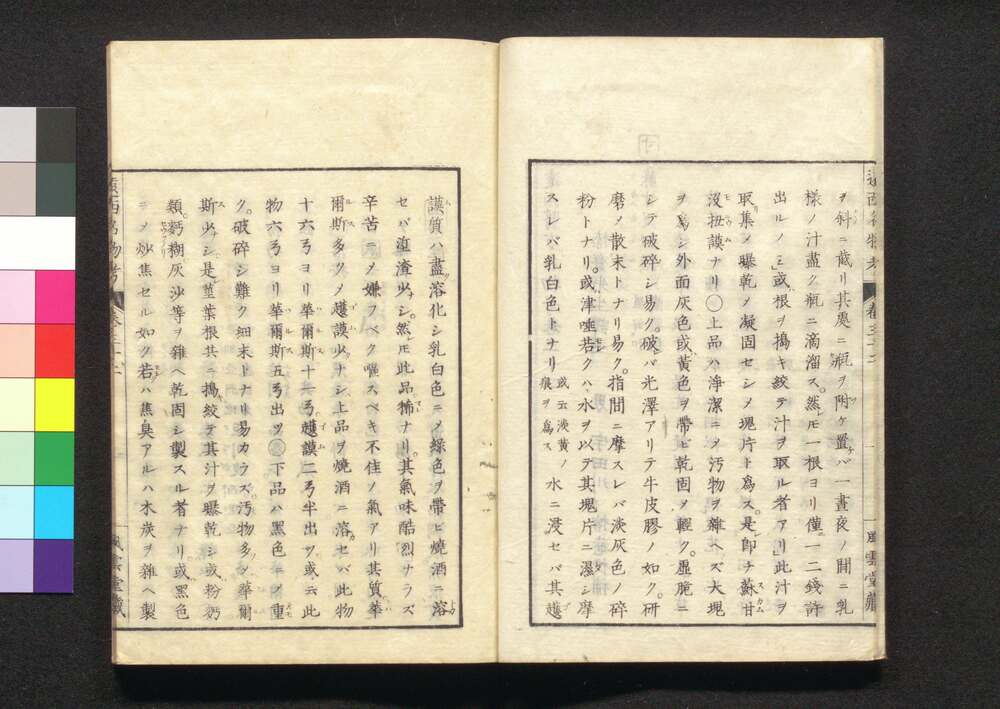 ヲ斜ニ截リ其処ニ瓶ヲ附ケ置バ一晝夜ノ間ニ乳
様ノ汁盡ク瓶ニ滴溜ス然レモ一根ヨリ僅一二錢許
出ルノミ或根ヲ搗キ絞テ汁ヲ取ル者アリ此汁ヲ
取集メ曝乾ノ凝固セシメ塊片ト為ス是卽チ蘇甘
没扭謨ナリ○上品ハ浄潔ニメ汚物ヲ雜ヘズ大塊
ヲ為シ外面灰色或黄色ヲ帶ビ乾固メ輕ク脆ニ
シテ破碎シ易ク破レバ光澤アリテ牛皮膠ノ如ク研
磨メ散末トナリ易ク指間ニ摩スレバ淡灰色ノ碎
粉トナリ或津唾若クハ水ヲ以テ其塊片ニ濕シ摩
スレバ乳白色トナリ 或云淡黄ノ痕ヲ為ス 水ニ浸セバ其越
謨質ハ盡溶化シ乳白色ニメ綠色ヲ帶ビ燒酒ニ溶
セバ渣滓少シ然レモ此品稀ナリ其氣味酷烈ナラズ
辛苦ニメ嫌フベク嘔スベキ不佳ノ氣アリ其質華
爾斯多クメ越謨少ナシ上品ヲ燒酒ニ溶セバ此物
十六弓ヨリ華爾斯十一弓越謨二弓半出ツ或云此
物六弓ヨリ華爾斯五弓出ツ○下品ハ黑色ニメ重
ク破碎シ難ク細末トナリ易カラズ汚物多ク華爾
斯少シ是莖葉根共ニ搗絞テ其汁ヲ曝乾シ或粉
類麪糊灰沙等ヲ雜ヘ乾固シ製スル者ナリ或黑色
ニメ炒焦セル如ク若ハ焦臭アルハ木炭ヲ雜ヘ製
遠西名物考
卷三十二
風雲堂藏